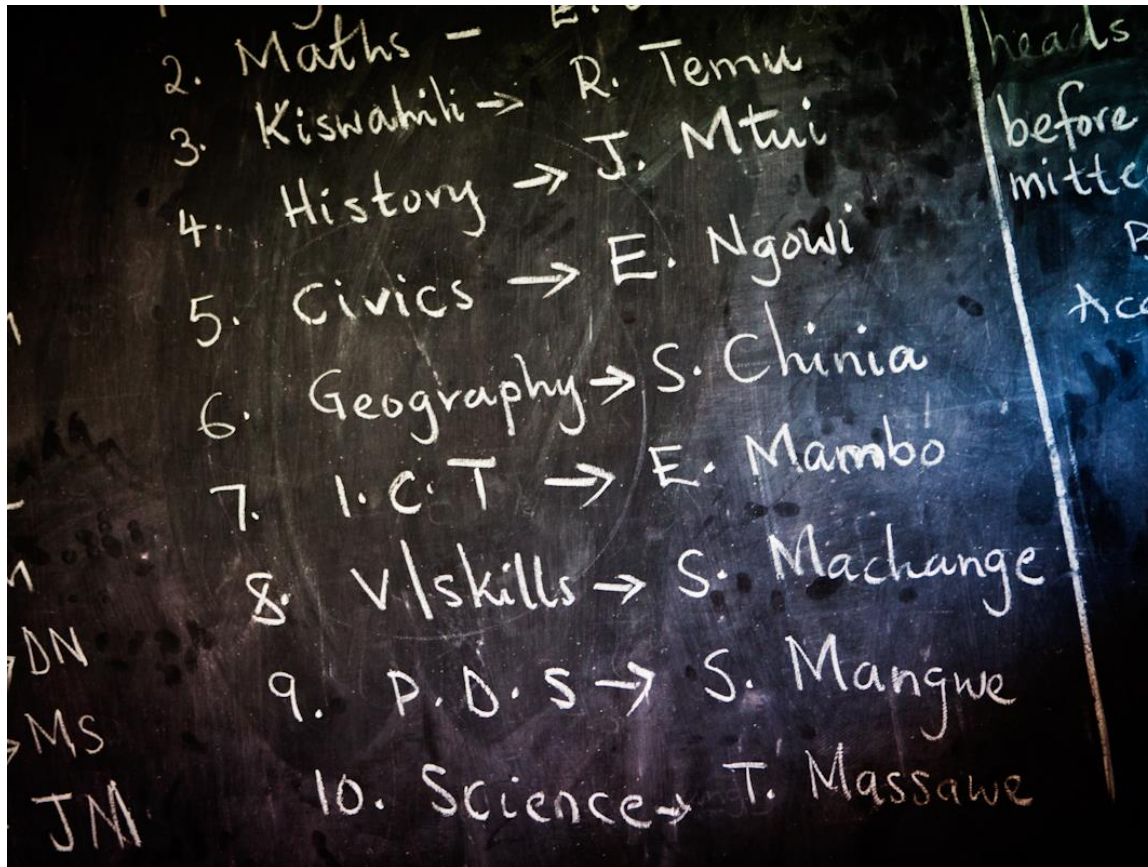 2. Maths – E.
3. Kiswahili → R. Temu
4. History → J. Mtui
5. Civics → E. Ngowi
6. Geography → S. Chinia
7. I.C.T → E. Mambo
8. V/skills → S. Machange
9. P.D.S → S. Mangwe
10. Science → T. Massawe
heads
before
mitte
B
Acc
DN
MS
JM